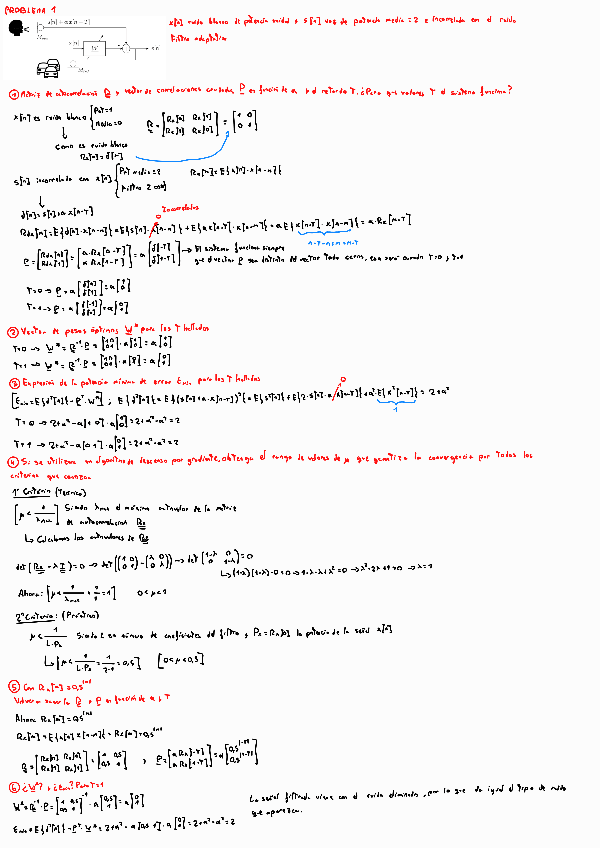 PROBLEMA 1
x[n] ruido blanco de potencia unidad y s[n] voz de potencia media = 2 e incorrelada con el ruido
Filtro adaptativo
① Matriz de autocorrelación R y vector de correlaciones cruzada P en función de a y el retardo T. ¿Para qué valores T el sistema funciona?
x[n] es ruido blanco { Pot = 1
Media = 0
R = [Rx[0] Rx[1] Rx[1] Rx[0]] = [1 0 0 1]
Como es ruido blanco
Rx[n] = δ[n]
s[n] incorrelada con x[n] { Pot media = 2
Filtro 2 coef
Rx[m] = E{x[n]·x[n-m]}
d[n] = s[n] + a x[n-T]
Incorrelados
0
Rdx[m] = E{d[n]·x[n-m]} = E{s[n]·x[n-m]} + E{a x[n-T]·x[n-m]} = a E{x[n-T]·x[n-m]} = a·Rx[m-T]
P = [Rdx[0] Rdx[1]] = [a·Rx[0-T] a·Rx[1-T]] = a [δ[-T] δ[1-T]] → El sistema funciona siempre
que el vector P sea distinto del vector todo ceros, esto será cuando T=0 y T=1
T=0 → P = a [δ[0] δ[1]] = a [1 0]
T=1 → P = a [δ[-1] δ[0]] = a [0 1]
② Vector de pesos óptimos W* para los T hallados
T=0 → W* = R⁻¹·P = [1 0 0 1]·a [1 0] = a [1 0]
T=1 → W* = R⁻¹·P = [1 0 0 1]·a [0 1] = a [0 1]
③ Expresión de la potencia mínima de error Emin para los T hallados
[Emin = E{d²[n]} - Pᵀ·W*] ; E{d²[n]} = E{(s[n] + a·x[n-T])²} = E{s²[n]} + E{2·s[n]·a·x[n-T]} + a²·E{x²[n-T]} = 2+a²
0
1
T=0 → 2+a² - a[1 0]·a[1 0] = 2+a²-a² = 2
T=1 → 2+a² - a[0 1]·a[0 1] = 2+a²-a² = 2
④ Si se utiliza un algoritmo de descenso por gradiente, obtenga el rango de valores de μ que garantiza la convergencia por todos los
criterios que conozca.
1º Criterio (Teórico)
Siendo λmax el máximo autovalor de la matriz
de autocorrelación Rx
↳ Calculamos los autovalores de Rx
det(Rx - λI) = 0 → det([1 0 0 1] - [λ 0 0 λ]) → det [1-λ 0 0 1-λ] = 0
↳ (1-λ)(1-λ) - 0 = 0 → 1-λ-λ+λ² = 0 → λ²-2λ+1 = 0 → λ=1
0<μ<1
2º Criterio: (Práctico)
μ < 1/L·Px Siendo L el número de coeficientes del filtro y Px = Rx[0] la potencia de la señal x[n]
↳ [μ < 1/L·Px = 1/2·1 = 0,5] [0<μ<0,5]
⑤ Con Rx[m] = 0,5^|m|
Volver a sacar la R y P en función de a y T
Ahora Rx[m] = 0,5^|m|
Rx[m] = E{x[n] x[n-m]} = Rx[m] = 0,5^|m|
R = [Rx[0] Rx[1] Rx[1] Rx[0]] = [1 0,5 0,5 1] , P = [a Rx[-T] a Rx[1-T]] = a [0,5^|-T| 0,5^|1-T|]
⑥ ¿W*? y ¿Emin? Para T=1
W* = R⁻¹·P = [1 0,5 0,5 1]⁻¹·a [0,5 1] = a [0 1]
Emin = E{d²[n]} - Pᵀ·W* = 2+a² - a [0,5 1]·a [0 1] = 2+a²-a² = 2
La señal filtrada viene con el ruido eliminado, por lo que da igual el tipo de ruido
que aparezca.